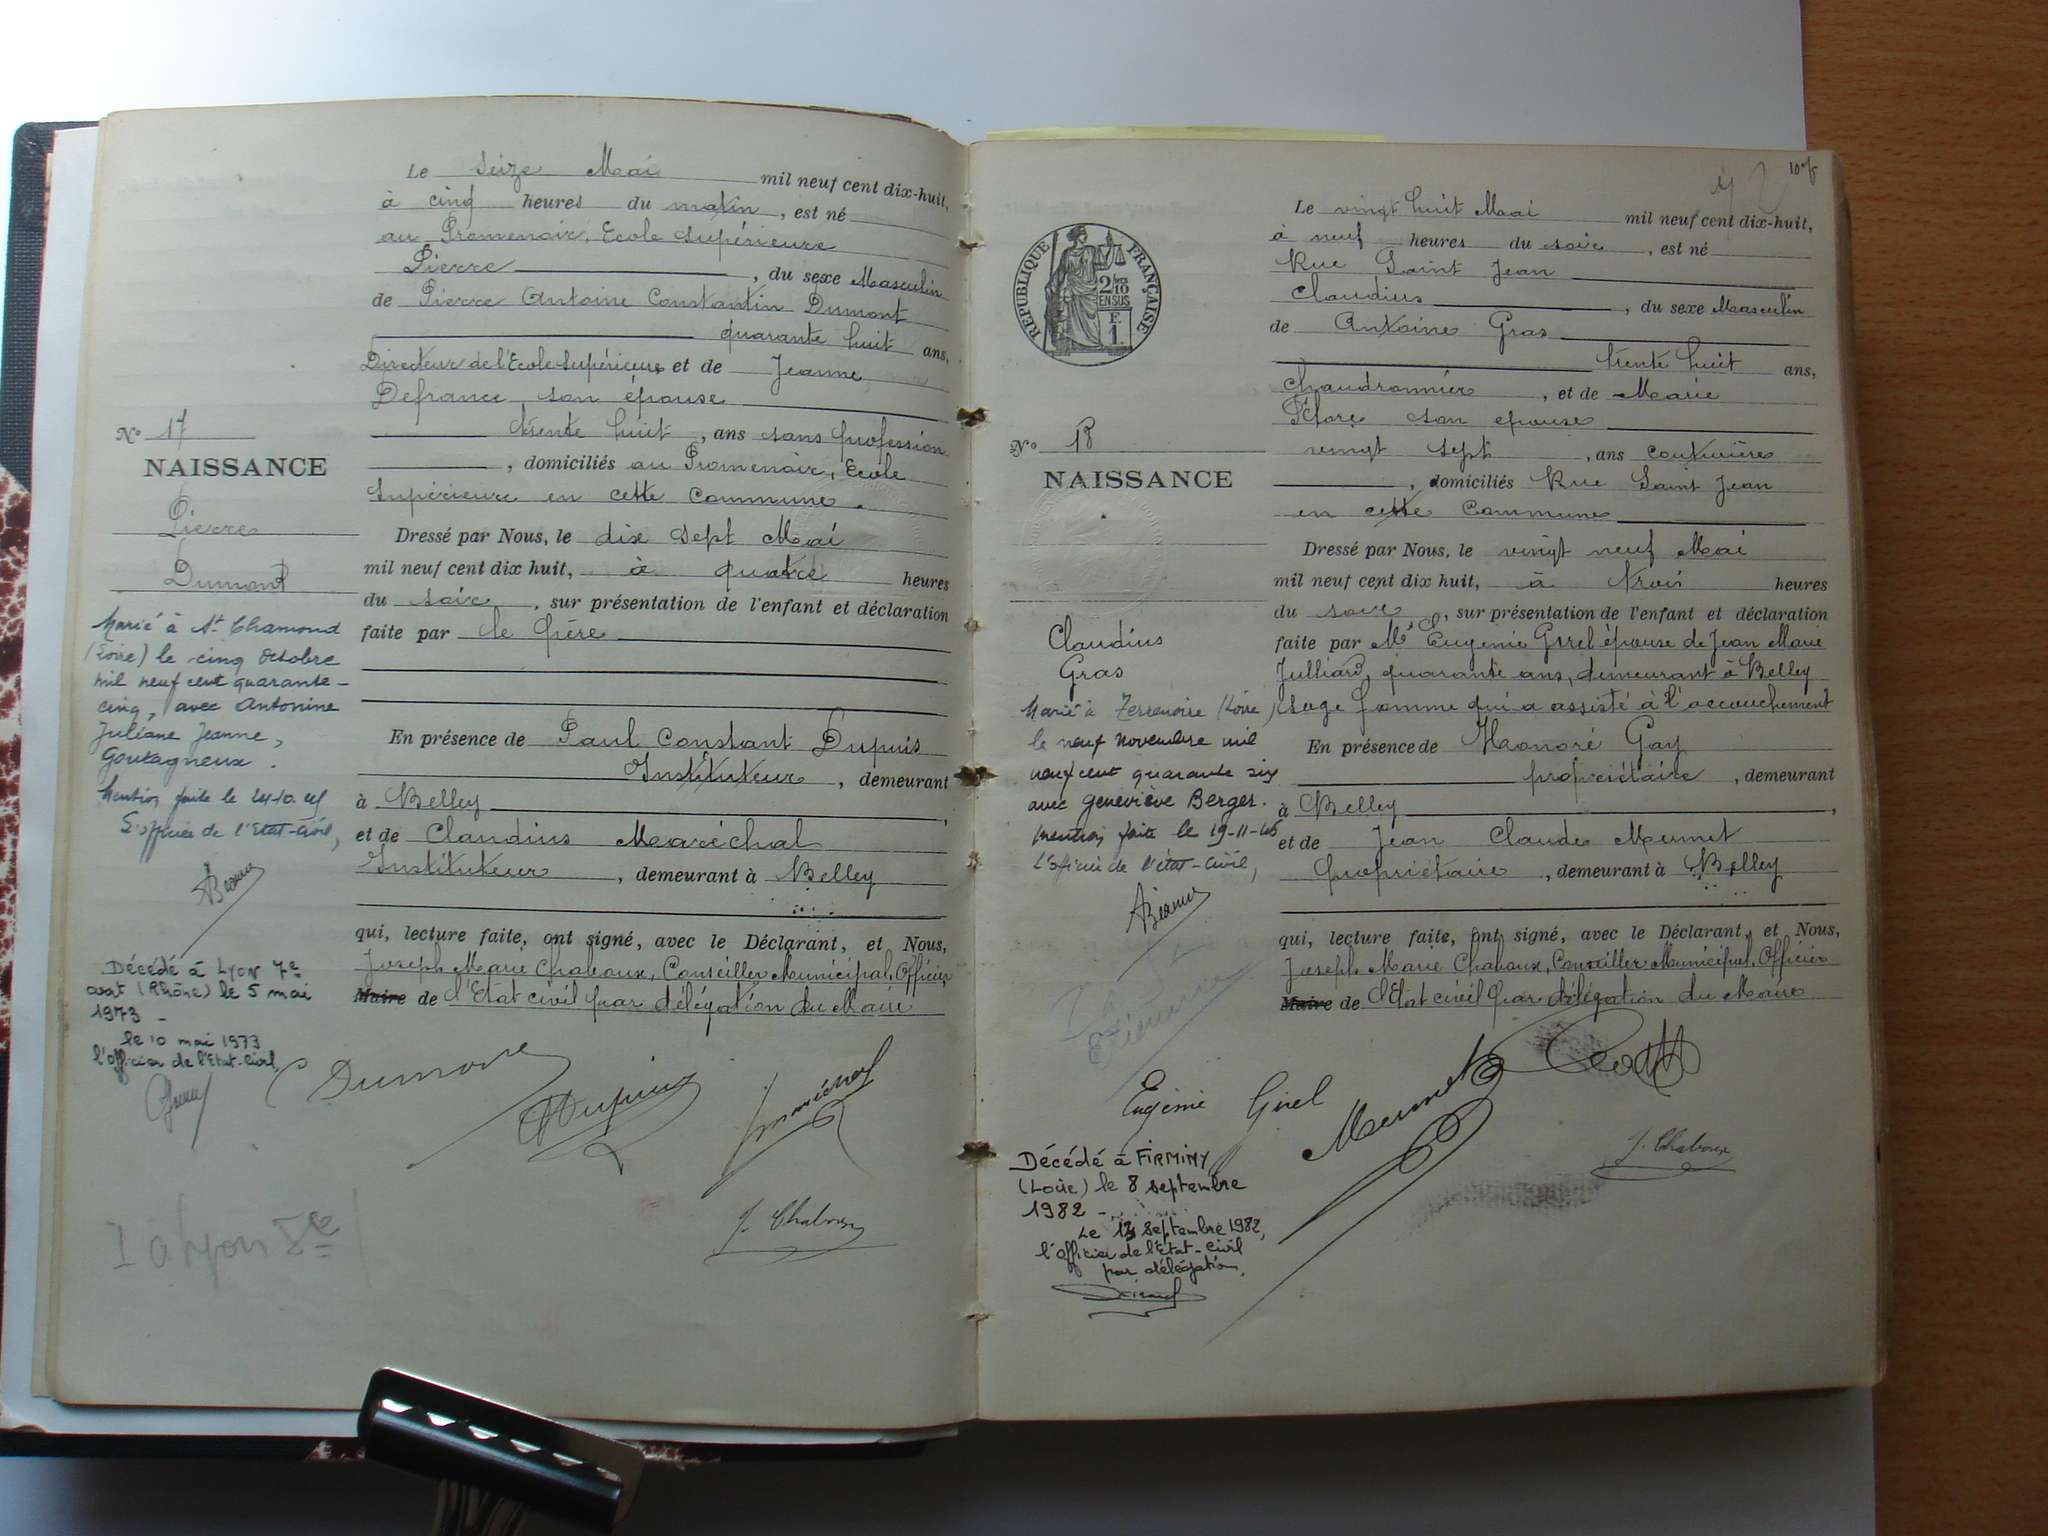 Le Seize Mai mil neuf cent dix-huit,
à cinq heures du matin, est né
au Promenoir, Ecole Supérieure
Pierre, du sexe Masculin
de Pierre Antoine Constantin Dumont
quarante huit ans,
Directeur de l'Ecole Supérieure et de Jeanne
Defrance son épouse
trente huit, ans sans profession
, domiciliés au Promenoir, Ecole
Supérieure en cette Commune.
Dressé par Nous, le dix sept Mai
mil neuf cent dix huit, à quatre heures
du soir, sur présentation de l'enfant et déclaration
faite par le Père
En présence de Paul Constant Dupuis
Instituteur, demeurant
à Belley,
et de Claudius Maréchal
Instituteur, demeurant à Belley
qui, lecture faite, ont signé, avec le Déclarant, et Nous,
Joseph Marie Chaboux, Conseiller Municipal, Officier
Maire de l'Etat civil par délégation du Maire
N° 17
NAISSANCE
Pierre
Dumont
Marié à St Chamond
(Loire) le cinq octobre
mil neuf cent quarante-
cinq, avec Antonine
Juliane Jeanne,
Goutagneux.
Mention faite le 24-10.45
L'officier de l'Etat-Civil,
Décédé à Lyon 7e
arrt (Rhône) le 5 mai
1973 -
le 10 mai 1973
l'officier de l'Etat-Civil,
Dumont
Dupuis
Maréchal
J. Chaboux
I a Lyon 8e
107
Le vingt huit Mai mil neuf cent dix-huit,
à neuf heures du soir, est né
Rue Saint Jean
Claudius, du sexe Masculin
de Antoine Gras
trente huit ans,
chaudronnier, et de Marie
Flore son épouse
vingt sept, ans couturière
, domiciliés Rue Saint Jean
en cette Commune
Dressé par Nous, le vingt neuf Mai
mil neuf cent dix huit, à trois heures
du soir, sur présentation de l'enfant et déclaration
faite par Me Eugénie Girel épouse de Jean Marie
Julliard, quarante ans, demeurant à Belley
sage femme qui a assisté à l'accouchement
En présence de Honoré Gay
propriétaire, demeurant
à Belley,
et de Jean Claude Mermet
propriétaire, demeurant à Belley
qui, lecture faite, ont signé, avec le Déclarant, et Nous,
Joseph Marie Chaboux, Conseiller Municipal, Officier
Maire de l'Etat civil par délégation du Maire
REPUBLIQUE FRANÇAISE
2/10
EN SUS
F.
1.
N° 18
NAISSANCE
Claudius
Gras
Marié à Terrenoire (Loire)
le neuf novembre mil
neuf cent quarante six
avec Geneviève Berger.
Mention faite le 19-11-46
L'officier de l'état-civil,
Eugénie Girel
Mermet
J. Chaboux
Décédé à FIRMINY
(Loire) le 8 septembre
1982 -
Le 13 septembre 1982,
l'officier de l'Etat-Civil
par délégation,